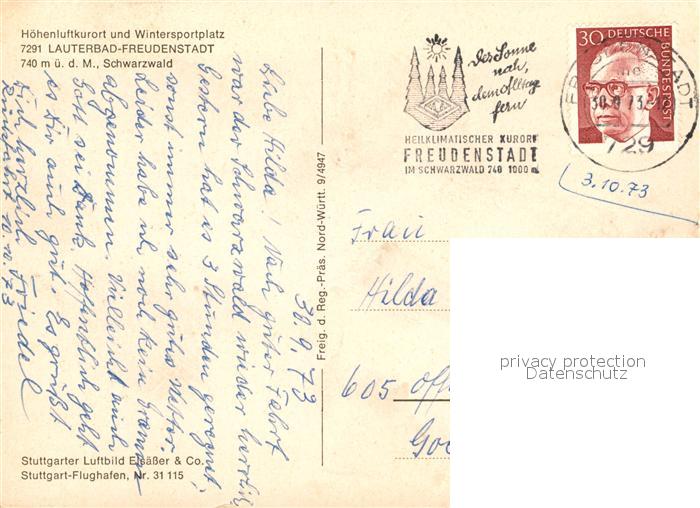 Höhenluftkurort und Wintersportplatz
7291 LAUTERBAD-FREUDENSTADT
740 m ü. d. M., Schwarzwald
Der Sonne
nah,
dem Alltag
fern
HEILKLIMATISCHER KURORT
FREUDENSTADT
IM SCHWARZWALD 740 1000 m
30 DEUTSCHE
BUNDESPOST
729
3.10.73
30.9.73
Liebe Hilda! Nach guter Fahrt
war der Schwarzwald wieder herrlich
Gestern hat es 3 Stunden geregnet,
sonst immer sehr gutes Wetter.
Leider habe ich noch kein Gramm
abgenommen. Vielleicht auch
Gott sei Dank. Hoffentlich geht
es Dir auch gut. Es grüßt
Dich herzlich Friedel
Freig. d. Reg.-Präs. Nord-Württ. 9/4947
Frau
Hilda
605 Off
Goe
privacy protection
Datenschutz
Stuttgarter Luftbild Elsäßer & Co.
Stuttgart-Flughafen, Nr. 31 115